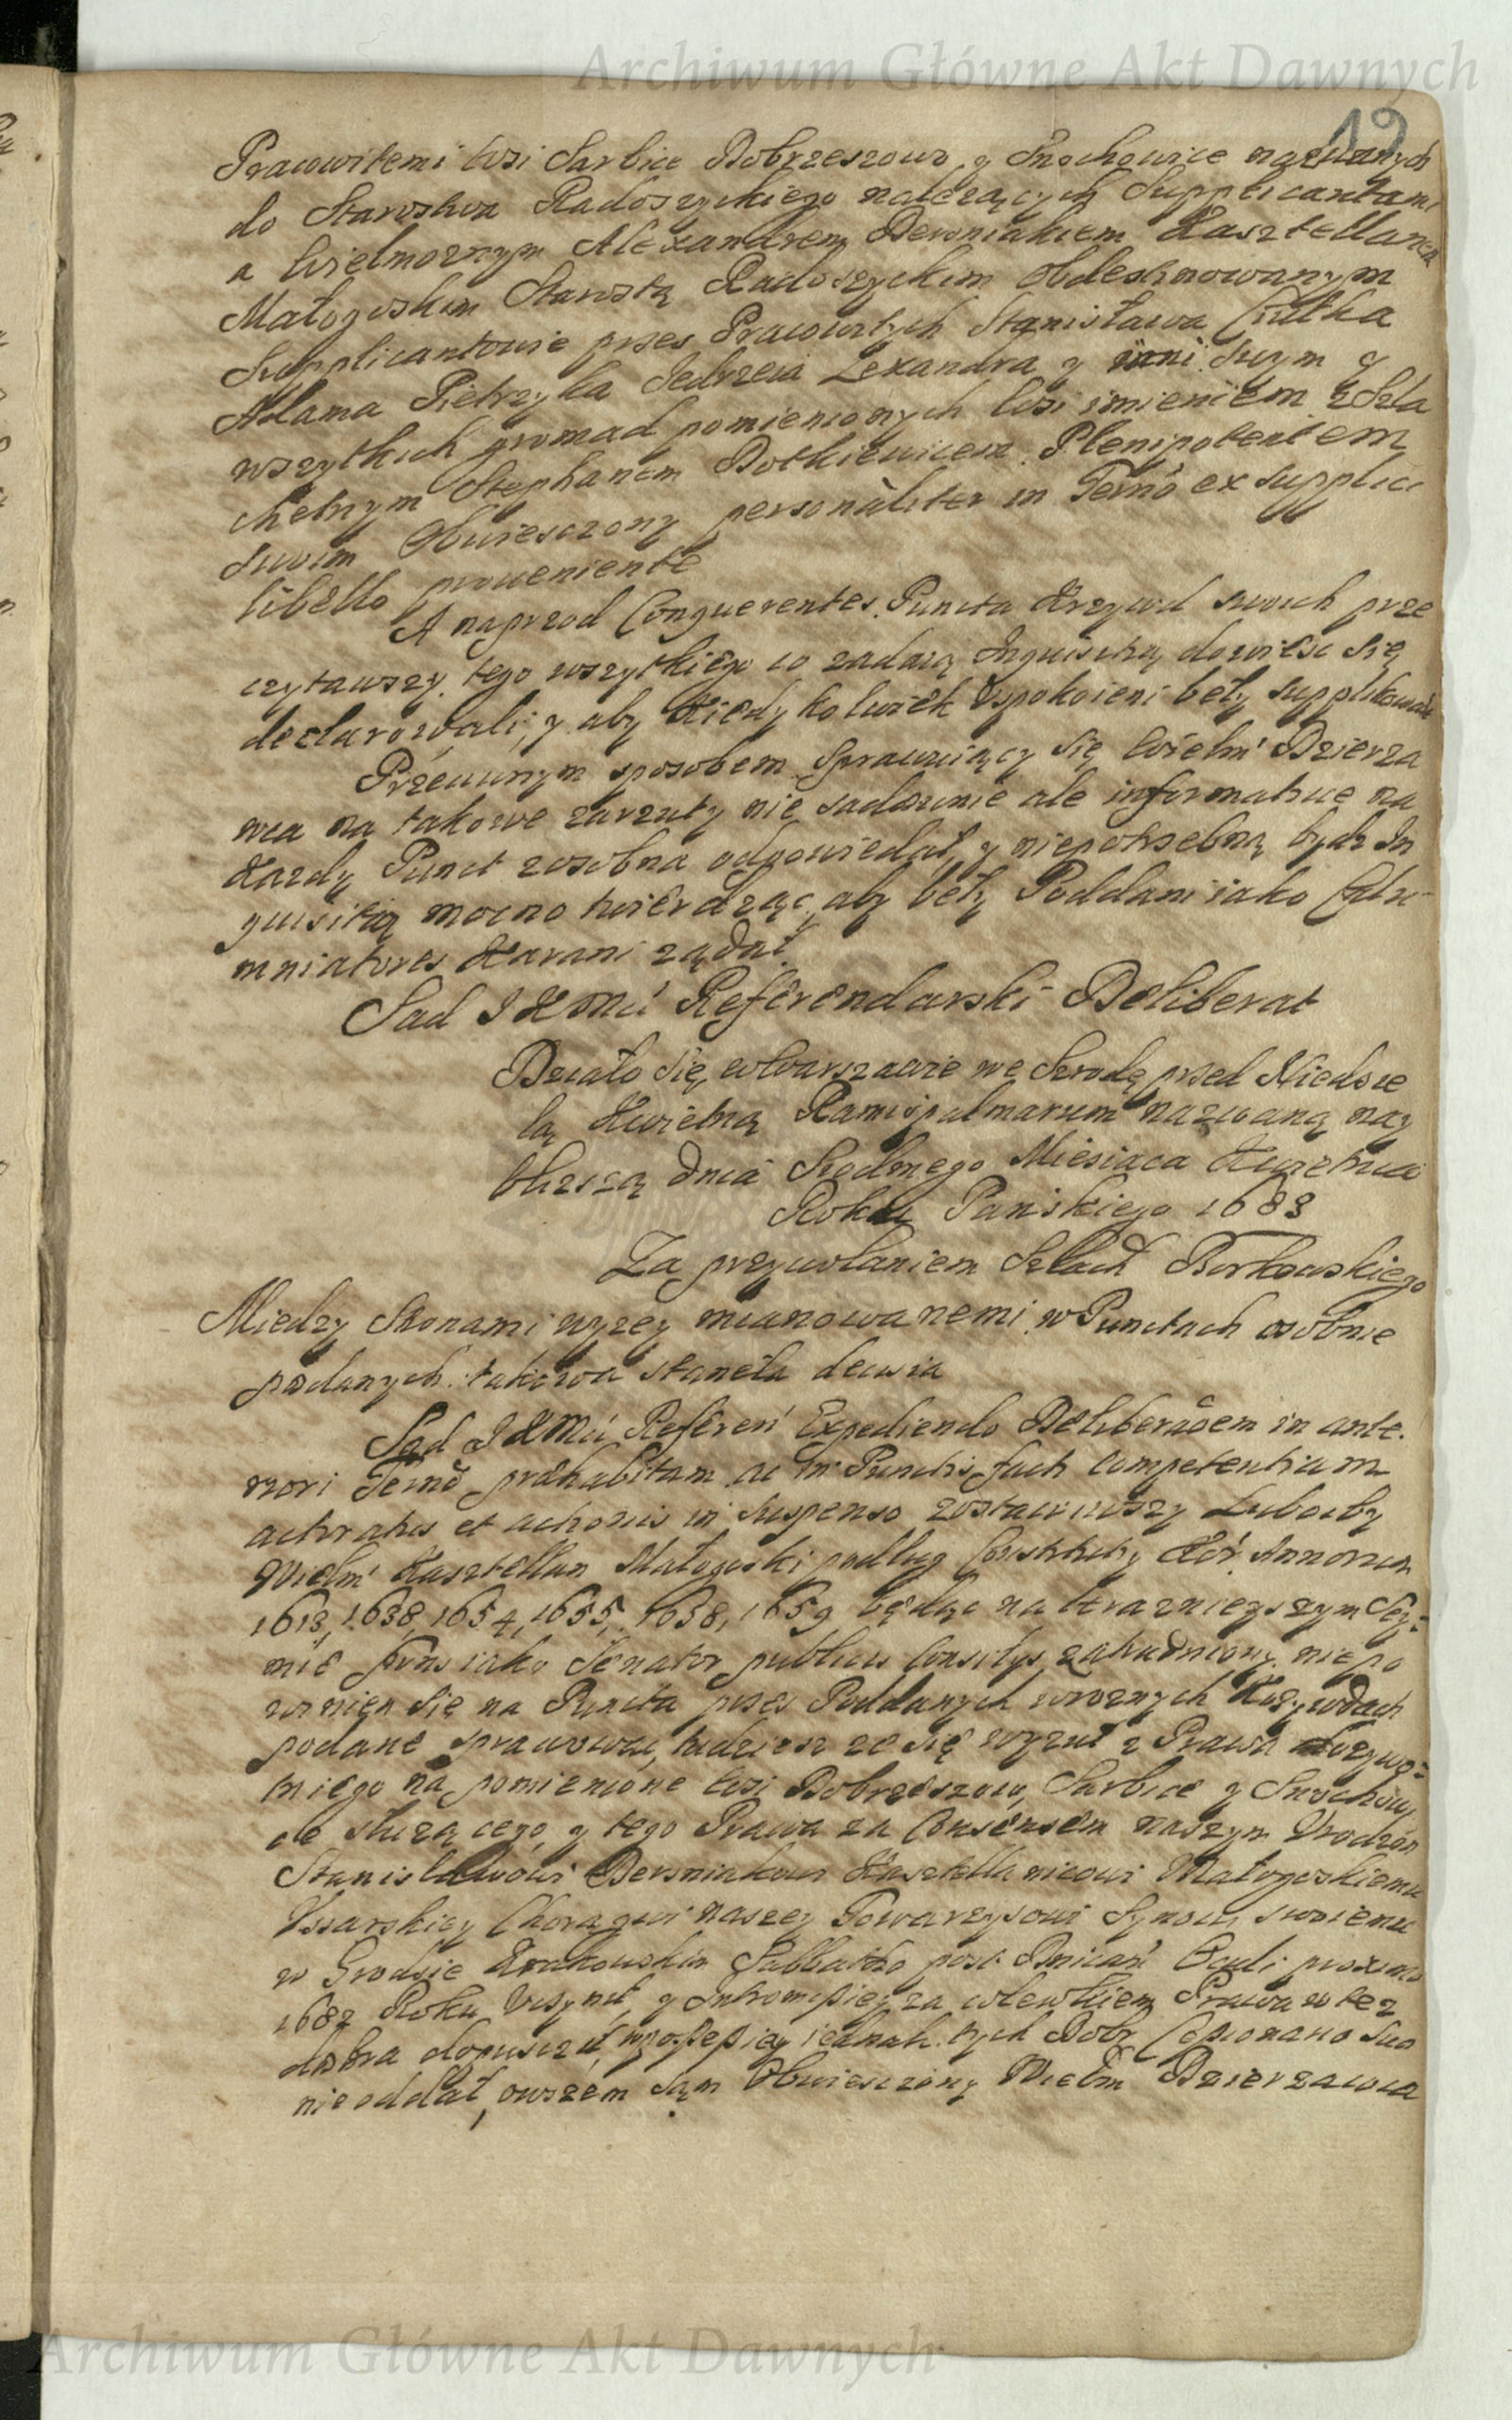 Archiwum Główne Akt Dawnych
19
Pracowitemi wsi Sarbice Dobrzeszowa y Snochowice nazwanych
do Starostwa Radoszyckiego należących Supplicantami
a Wielmożnym Alexandrem Bersniakiem Kasztellanem
Małogoskim Starostą Radoszyckim Obdesznowanym
Supplicantowie przes Pracowitych Stanisława Ciutka
Adama Pietrzyka Jedrzeia Lexandra y inni swym y
wszytkich gromad pomienionych wsi imieniem z Szla
chetnym Stephanem Dotkiewicem Plenipotentem
swoim Obwiesczony personaliter in Termo ex supplici
libello proveniente
A naprzod Conquerentes Puncta Krzywd swoich prze
czytawszy tego wszytkiego co zadaią Inquisitią dowiesc się
declarowali, y aby kiedykolwiek Uspokoieni bely supplikowali
Przeciwnym sposobem Sprawuiący się Wielm' Dzierza
wca na takowe zarzuty nie sadownie ale informative na
Kazdy Punct zosobna odpowiedał, y niepotrzebną bydz In
quisitią mocno twierdząc, aby bely Poddani iako Calu-
mniatores Karani ządał.
Sad I K Mci Referendarski Deliberat
Działo się w Warszawie we Srzodę przed Niedzie
lą Kwietną Ramispalmarum nazwaną nay
blizszą dnia Siedmego Miesiąca Kwietnia
Roku Pańskiego 1683
Za przywołaniem Szlach Borkowskiego
Miedzy Stronami wyzey mianowanemi w Punctach osobnie
podanych takowa staneła decisia
Sąd I K Mci Referen' Expediendo Deliberaoem in ante.
riori Termo præhabitam ac in Punctis fach competentiam
actoratus et actionis in suspenso zostawiwszy Luboby
Wielm' Kasztellan Małogoski podług Constitutiy Kor. Annorum
1613, 1638, 1654, 1655, 1658, 1659 będąc na teraznieyszym Sey-
mie Prns iako Senator publicis Consilys zatrudniony niepo
winien się na Puncta przes Poddanych w roznych Krzywdach
podane sprawowac, tudziesz ze się wyzuł z Prawa dozywo-
tniego na pomienione wsi Dobrzeszow, Sarbice y Snochowi
ce słuzącego y tego Prawa za Consensem naszym Urodzon
Stanisławowi Bersniakowi Kasztellanicowi Małogoskiemu
Ussarskiey Chorągwi naszey Towarzysowi Synowi swoiemu
w Grodzie Krakowskim Sabbatho post Dnicam Oculi proxime
1682 Roku Uczynił, y Intromissiey za wlewkiem Prawa w tez
dobra dopuscił, w possessiey iednak tych Dobr Cessionario suo
nie oddał, owszem sam Obwiesczony Wielm Dzierzawca
Archiwum Główne Akt Dawnych